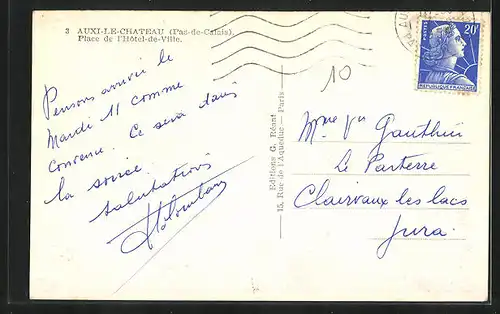 3 AUXI-LE-CHATEAU (Pas-de-Calais).
Place de l'Hôtel-de-Ville.
Pensons arriver le
Mardi 11 comme
convenu. Ce sera dans
la soirée.
Salutations
10
Editions G. Réant
15, Rue de l'Aqueduc — Paris
POSTES
20F
REPUBLIQUE FRANÇAISE
Mme Vve Gauthier
Le Parterre
Clairvaux les lacs
Jura.